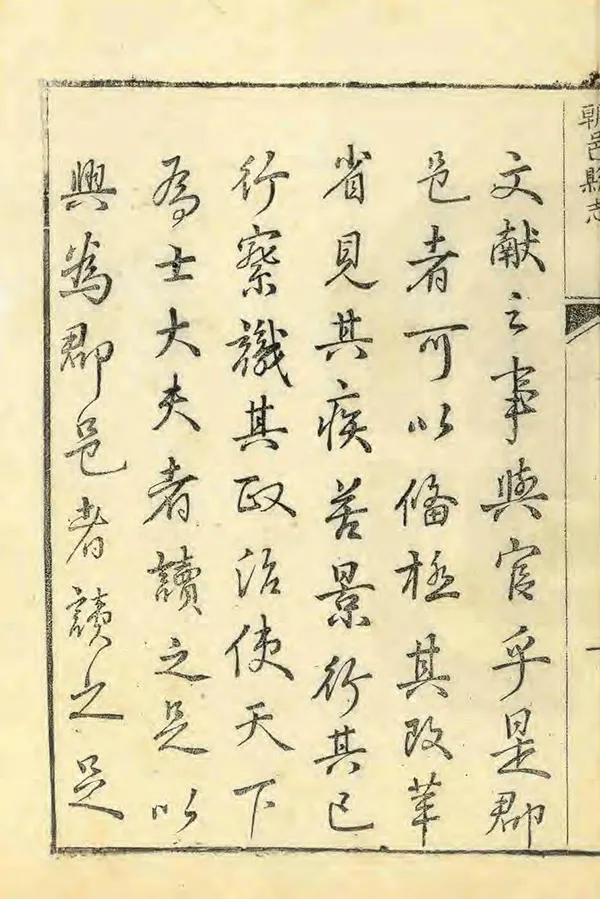 朝邑縣志
文献之事與官乎是郡
邑者可以俻極其改革
省見其疾苦景行其已
行察識其政治使天下
為士大夫者讀之足以
興為郡邑者讀之足